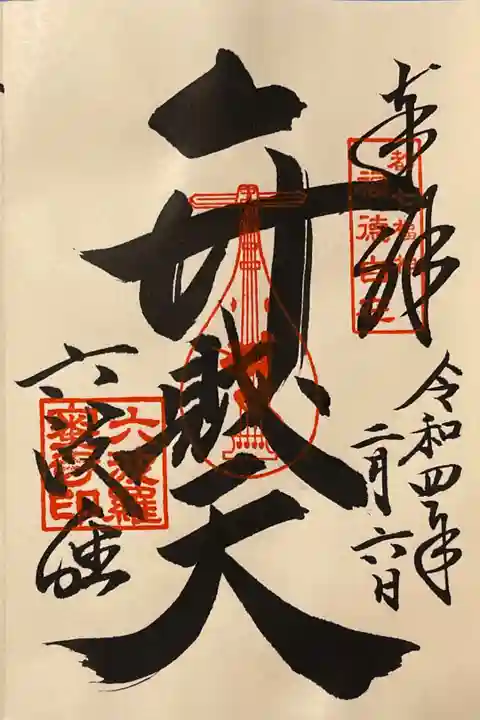 奉拝
都七福神
令和四年
二月六日
弁財天
六波
六波羅
蜜寺印